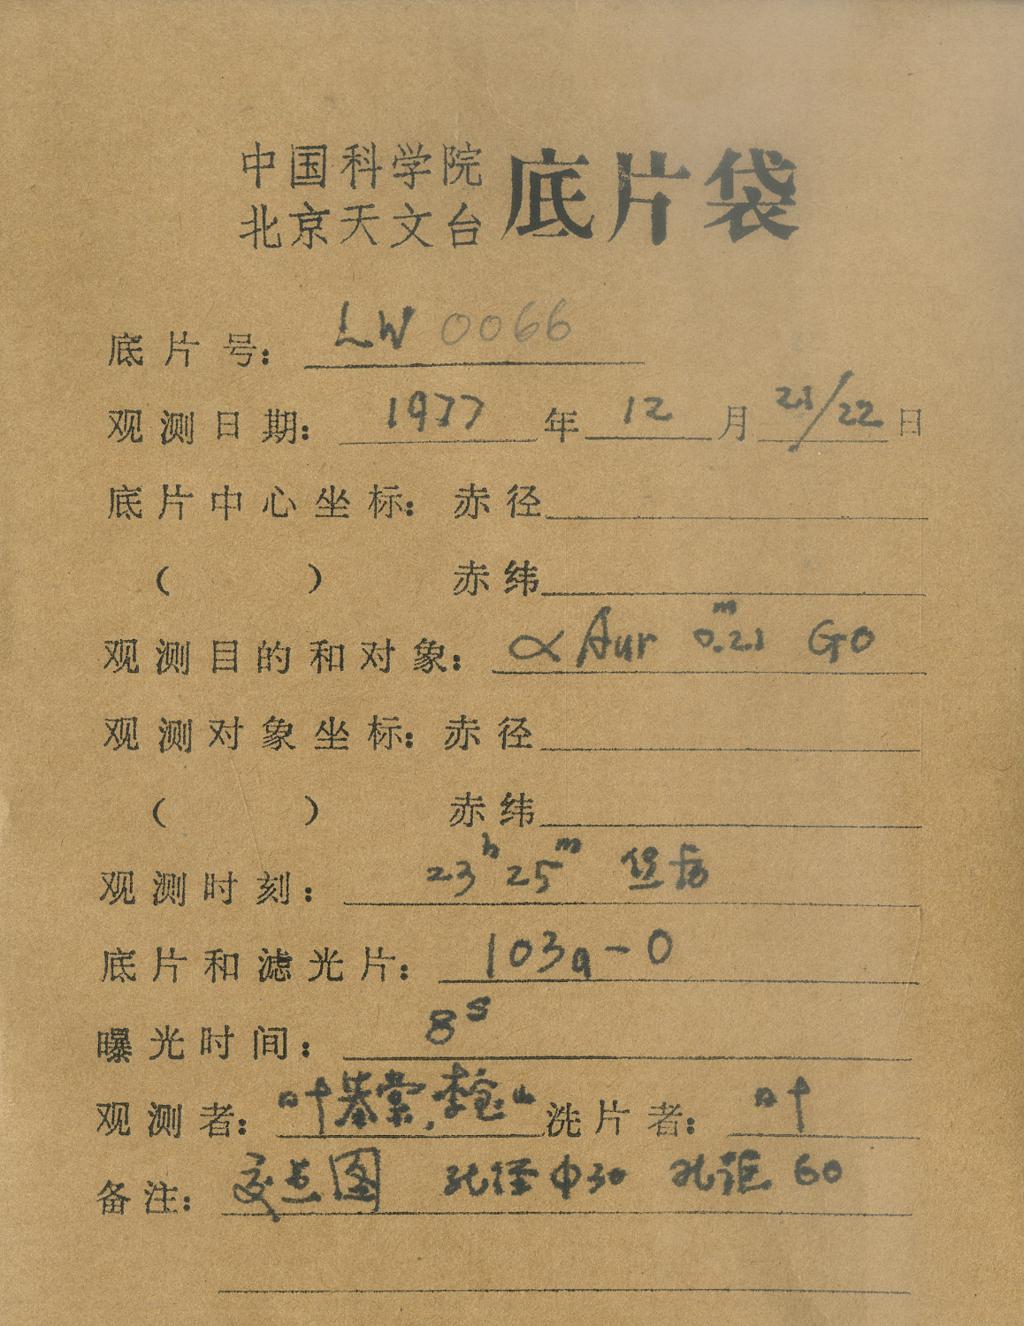 中国科学院
北京天文台 底片袋
底片号: LW 0066
观测日期: 1977 年 12 月 21/22 日
底片中心坐标: 赤径
( ) 赤纬
观测目的和对象: α Aur 0.21ᵐ G0
观测对象坐标: 赤径
( ) 赤纬
观测时刻: 23ʰ 25ᵐ
底片和滤光片: 103a-O
曝光时间: 8ˢ
观测者: 叶基棠, 李宝山 洗片者: 叶
备注: 交点图 孔径φ30 孔距 60